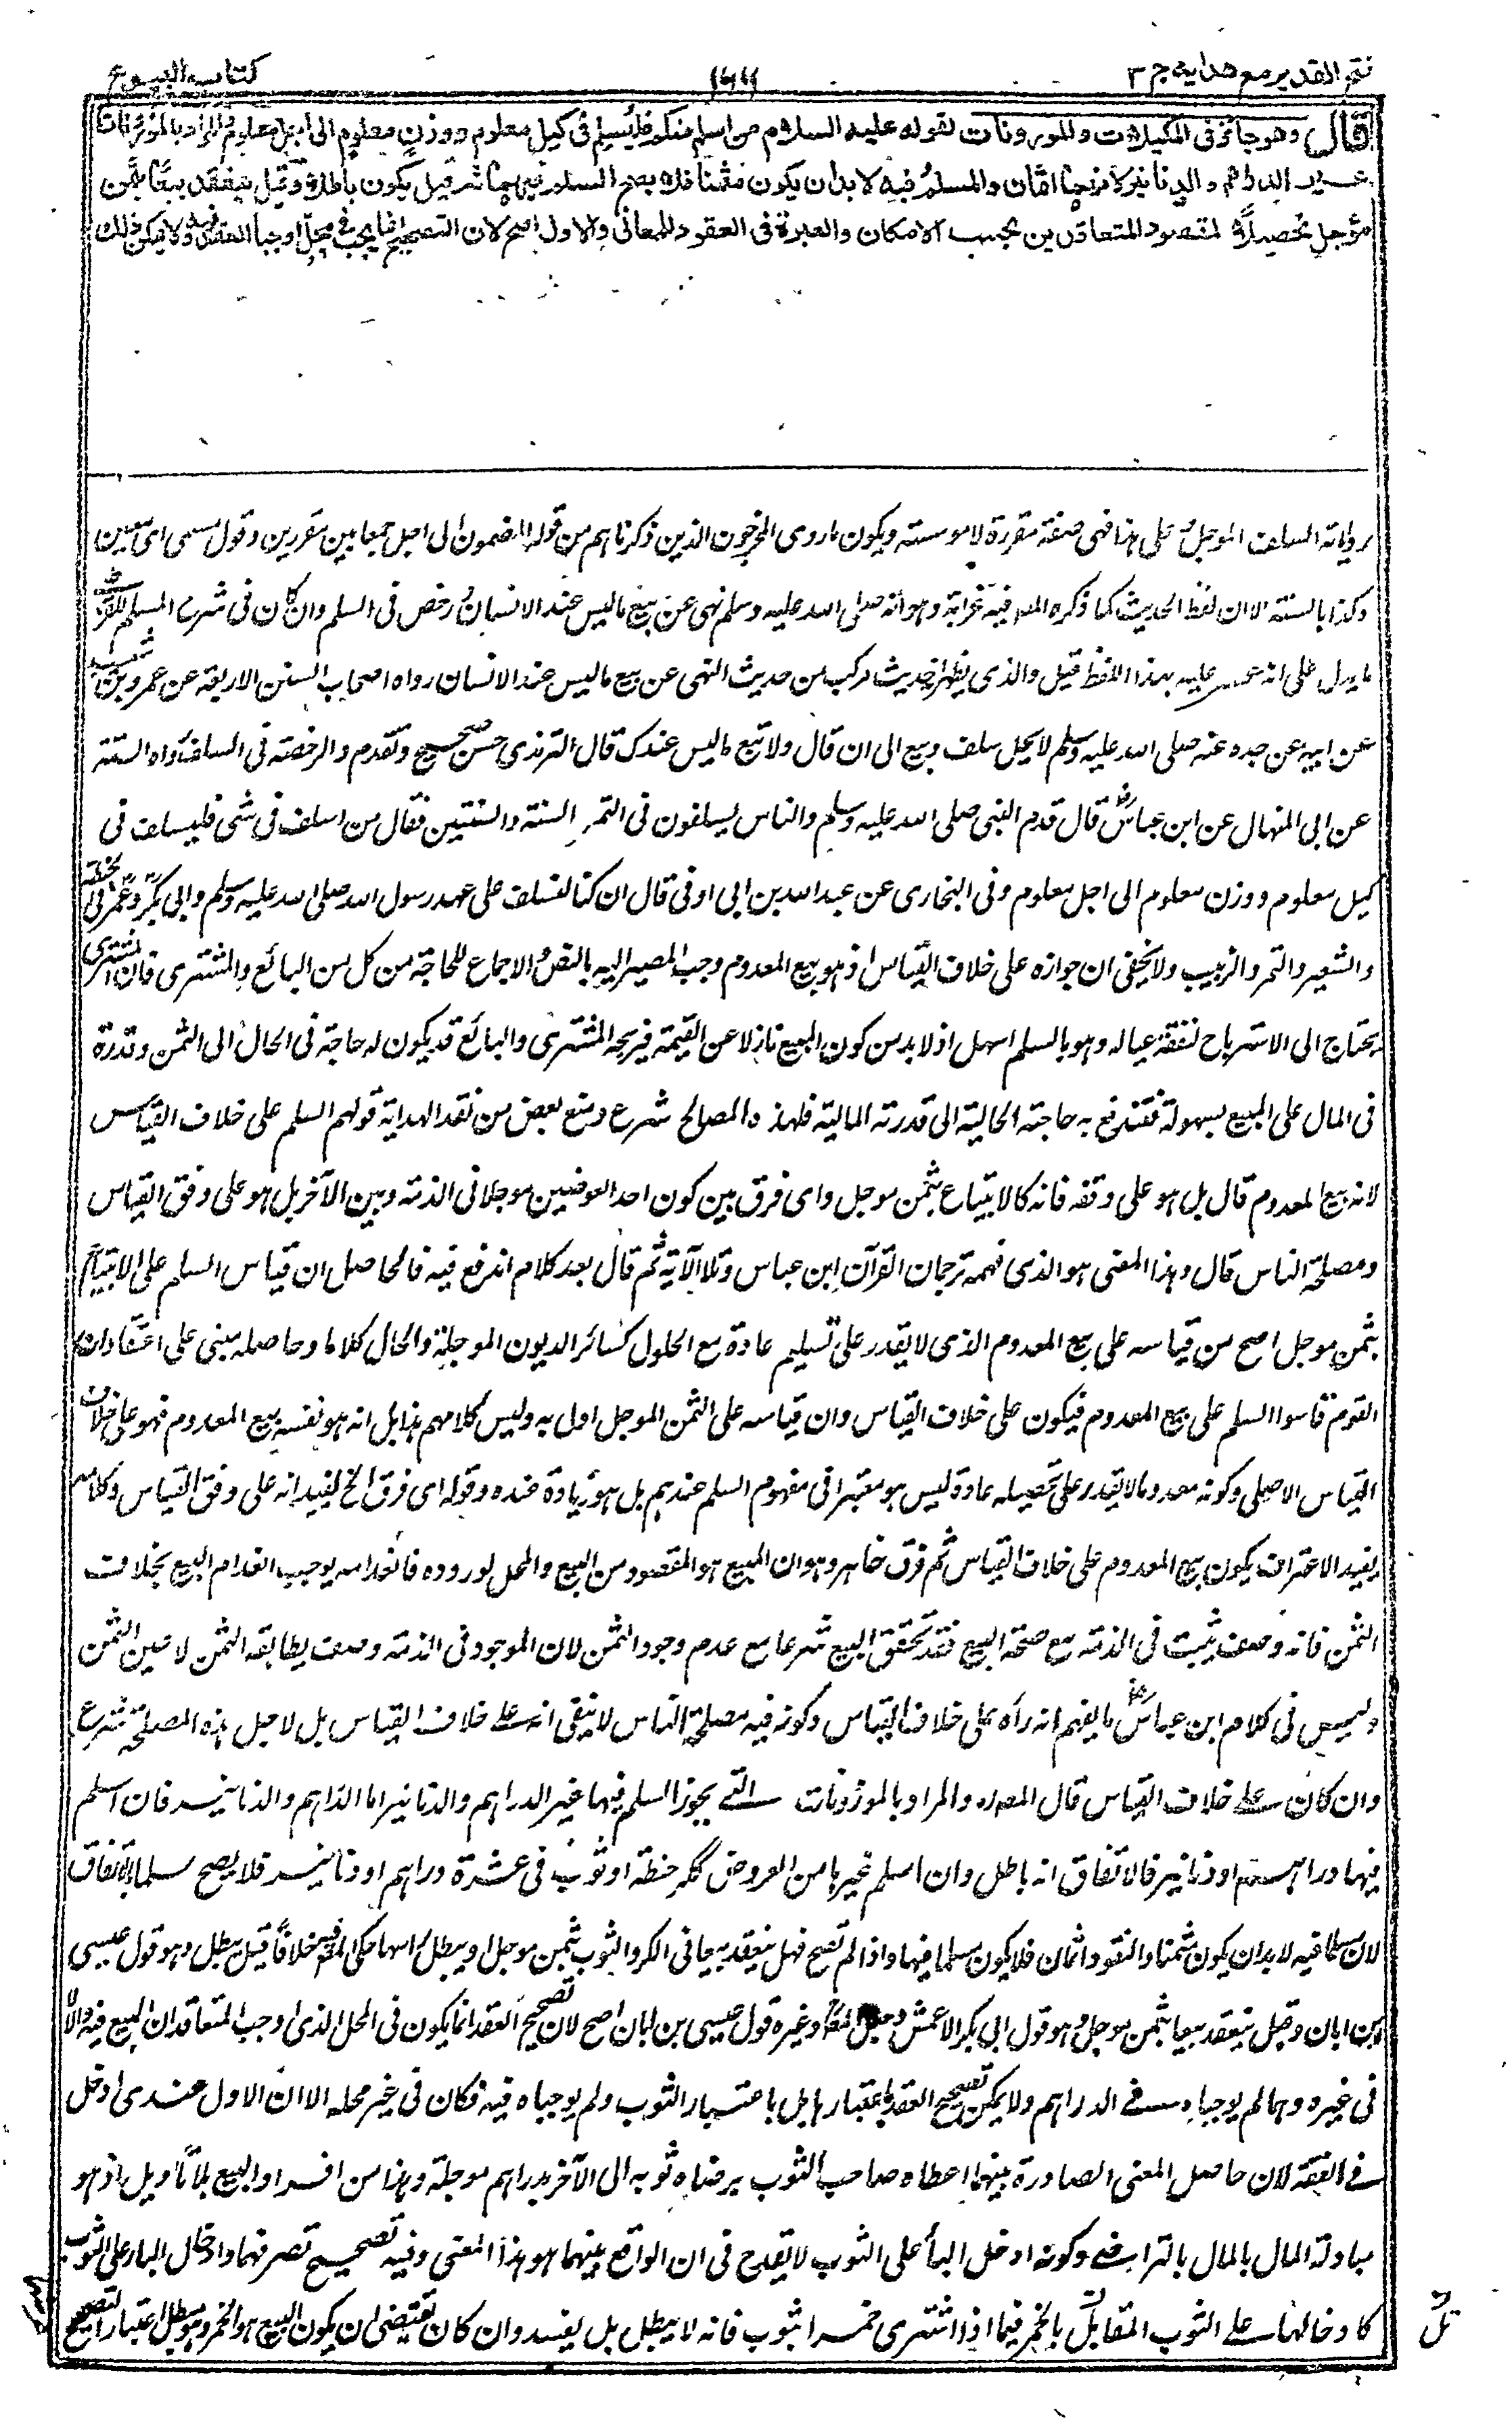 فتح القدير مع هداية ج ٣
كتاب البيوع
قال وهو جائز فى المكيلات والموزونات لقوله عليه السلام من اسلم منكم فليسلم فى كيل معلوم ووزن معلوم الى اجل معلوم والمراد بالموزونات
غير الدراهم والدنانير لانهما اثمان والمسلم فيه لا بد ان يكون مثمنا فلا يصح السلم فيهما ثم قيل يكون باطلا وقيل ينعقد بيعا بثمن
مؤجل تحصيلا لمقصود المتعاقدين بحسب الامكان والعبرة فى العقود للمعانى والاول اصح لان التصحيح انما يجب فى محل اوجبا العقد فيه ولا يمكن ذلك
رواية السلف المؤجل على هذا فهى صفة مقررة لا موسسة ويكون ما روى المخرجون الذين ذكرناهم من قوله المضمون الى اجل جمعا بين مقررين وقوله مسمى اى معين
وكذا بالسنة الا ان لفظ الحديث كما ذكره المص فيه غرابة وهو انه صلى الله عليه وسلم نهى عن بيع ما ليس عند الانسان ورخص فى السلم وان كان فى شرح المسلم للقرطبى
ما يدل على انه عثر عليه بهذا اللفظ قيل والذى يظهر انه حديث مركب من حديث النهى عن بيع ما ليس عند الانسان رواه اصحاب السنن الاربعة عن عمرو بن شعيب
عن ابيه عن جده عنه صلى الله عليه وسلم لا يحل سلف وبيع الى ان قال ولا تبع ما ليس عندك قال الترمذى حسن صحيح وتقدم والرخصة فى السلف رواه الستة
عن ابى المنهال عن ابن عباس رض قال قدم النبى صلى الله عليه وسلم والناس يسلفون فى التمر السنة والسنتين فقال من اسلف فى شئ فليسلف فى
كيل معلوم ووزن معلوم الى اجل معلوم وفى البخارى عن عبد الله بن ابى اوفى قال ان كنا لنسلف على عهد رسول الله صلى الله عليه وسلم وابى بكر وعمر فى الحنطة
والشعير والتمر والزبيب ولا يخفى ان جوازه على خلاف القياس اذ هو بيع المعدوم وجب المصير اليه بالنص والاجماع للحاجة من كل من البائع والمشترى فان المشترى
يحتاج الى الاسترباح لنفقة عياله وهو بالسلم اسهل اذ لا بد من كون المبيع نازلا عن القيمة فيربحه المشترى والبائع قد يكون له حاجة فى الحال الى الثمن وقدرة
فى المال على المبيع بسهولة فتندفع به حاجته الحالية الى قدرته المالية فلهذه المصالح شرع ومنع بعض من نقد الهداية قولهم السلم على خلاف القياس
لانه بيع المعدوم قال بل هو على وفقه فانه كالابتياع بثمن مؤجل واى فرق بين كون احد العوضين مؤجلا فى الذمة وبين الآخر بل هو على وفق القياس
ومصلحة الناس قال وهذا المعنى هو الذى فهمه ترجمان القرآن ابن عباس وتلا الآية ثم قال بعد كلام اندفع فيه فالحاصل ان قياس السلم على الابتياع
بثمن مؤجل اصح من قياسه على بيع المعدوم الذى لا يقدر على تسليم عادة مع الحلول كسائر الديون المؤجلة والحال كلاما وحاصله مبنى على اعتقاد ان
القوم قاسوا السلم على بيع المعدوم فيكون على خلاف القياس وان قياسه على الثمن المؤجل اولى به وليس كلامهم هذا بل انه هو نفسه بيع المعدوم فهو على خلاف
القياس الاصلى وكونه معدوما لا يقدر على تحصيله عادة ليس هو معتبرا فى مفهوم السلم عندهم بل هو زيادة عنده وقوله اى فرق الخ يفيد انه على وفق القياس وكلامه
يفيد الاعتراف بكون بيع المعدوم على خلاف القياس ثم فرق ظاهر وهو ان المبيع هو المقصود من البيع والمحل لوروده فانعدامه يوجب انعدام البيع بخلاف
الثمن فانه وصف يثبت فى الذمة مع صحة البيع فقد تحقق البيع شرعا مع عدم وجود الثمن لان الموجود فى الذمة وصف يطابقه الثمن لا عين الثمن
وليس فى كلام ابن عباس رض ما يفهم انه رآه على خلاف القياس وكونه فيه مصلحة الناس لا ينفى انه على خلاف القياس بل لاجل هذه المصلحة شرع
وان كان على خلاف القياس قال المصره والمراد بالموزونات التى يجوز السلم فيها غير الدراهم والدنانير اما الدراهم والدنانير فان اسلم
فيها دراهم او دنانير فالاتفاق انه باطل وان اسلم غيرها من العروض ككر حنطة او ثوب فى عشرة دراهم او دنانير فلا يصح سلما بالاتفاق
لان المسلم فيه لا بد ان يكون مثمنا والنقود اثمان فلا يكون مسلما فيها واذا لم تصح فهل ينعقد بيعا فى الكر والثوب بثمن مؤجل او يبطل راسا حكى المص فيه خلافا قيل يبطل وهو قول عيسى
بن ابان وقيل ينعقد بيعا بثمن مؤجل وهو قول ابى بكر الاعمش وغيره قول عيسى بن ابان اصح لان تصحيح العقد انما يكون فى المحل الذى اوجب المتعاقدان البيع فيه لا
فى غيره وهما لم يوجباه فى الدراهم ولا يمكن تصحيح العقد باعتبارها بل باعتبار الثوب ولم يوجباه فيه فكان فى غير محله الا ان الاول عندى ادخل
فى الفقه لان حاصل المعنى الصادرة بينهما اعطاه صاحب الثوب برضاه ثوبه الى الآخر بدراهم مؤجلة وهذا من افراد البيع بلا تاويل اذ هو
مبادلة المال بالمال بالتراضى وكونه ادخل الباء على الثوب لا يقدح فى ان الواقع بينهما هو هذا المعنى وفيه تصحيح تصرفهما وادخال الباء على الثوب
كادخالها على الثوب المقابل بالخمر فيما اذا اشترى خمرا بثوب فانه لا يبطل بل يفسد وان كان يقتضى ان يكون المبيع هو الخمر وهو مبطل اعتبارا لتصحيح